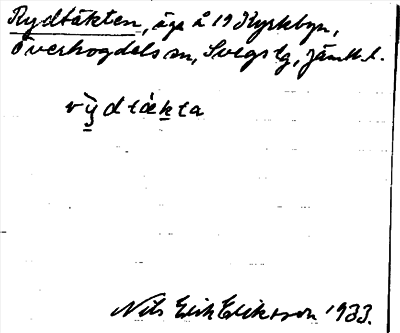 Rydtäkten, äga å 19 Kyrkbyn,
Överhogdals sn, Svegs tg, Jämtl. l.
rỳdtäkta
Nils Erik Eriksson 1933.